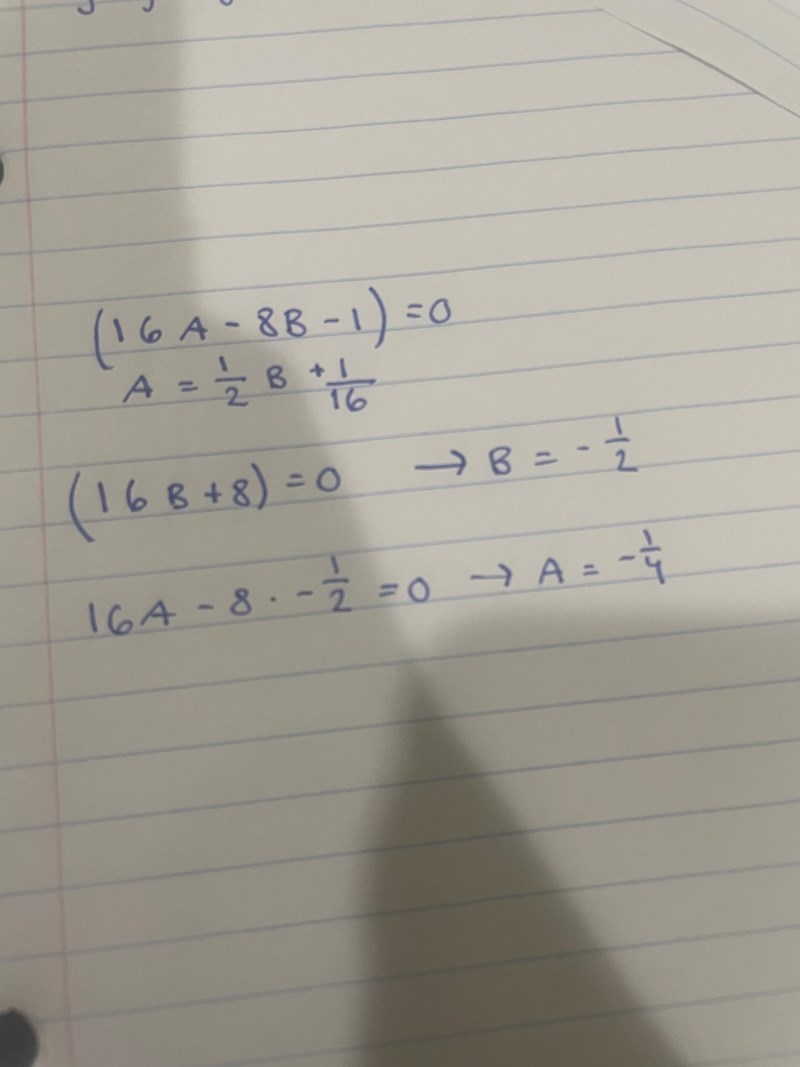 (16A - 8B - 1) = 0
A = 1/2 B + 1/16
(16B + 8) = 0 → B = - 1/2
16A - 8 · - 1/2 = 0 → A = - 1/4